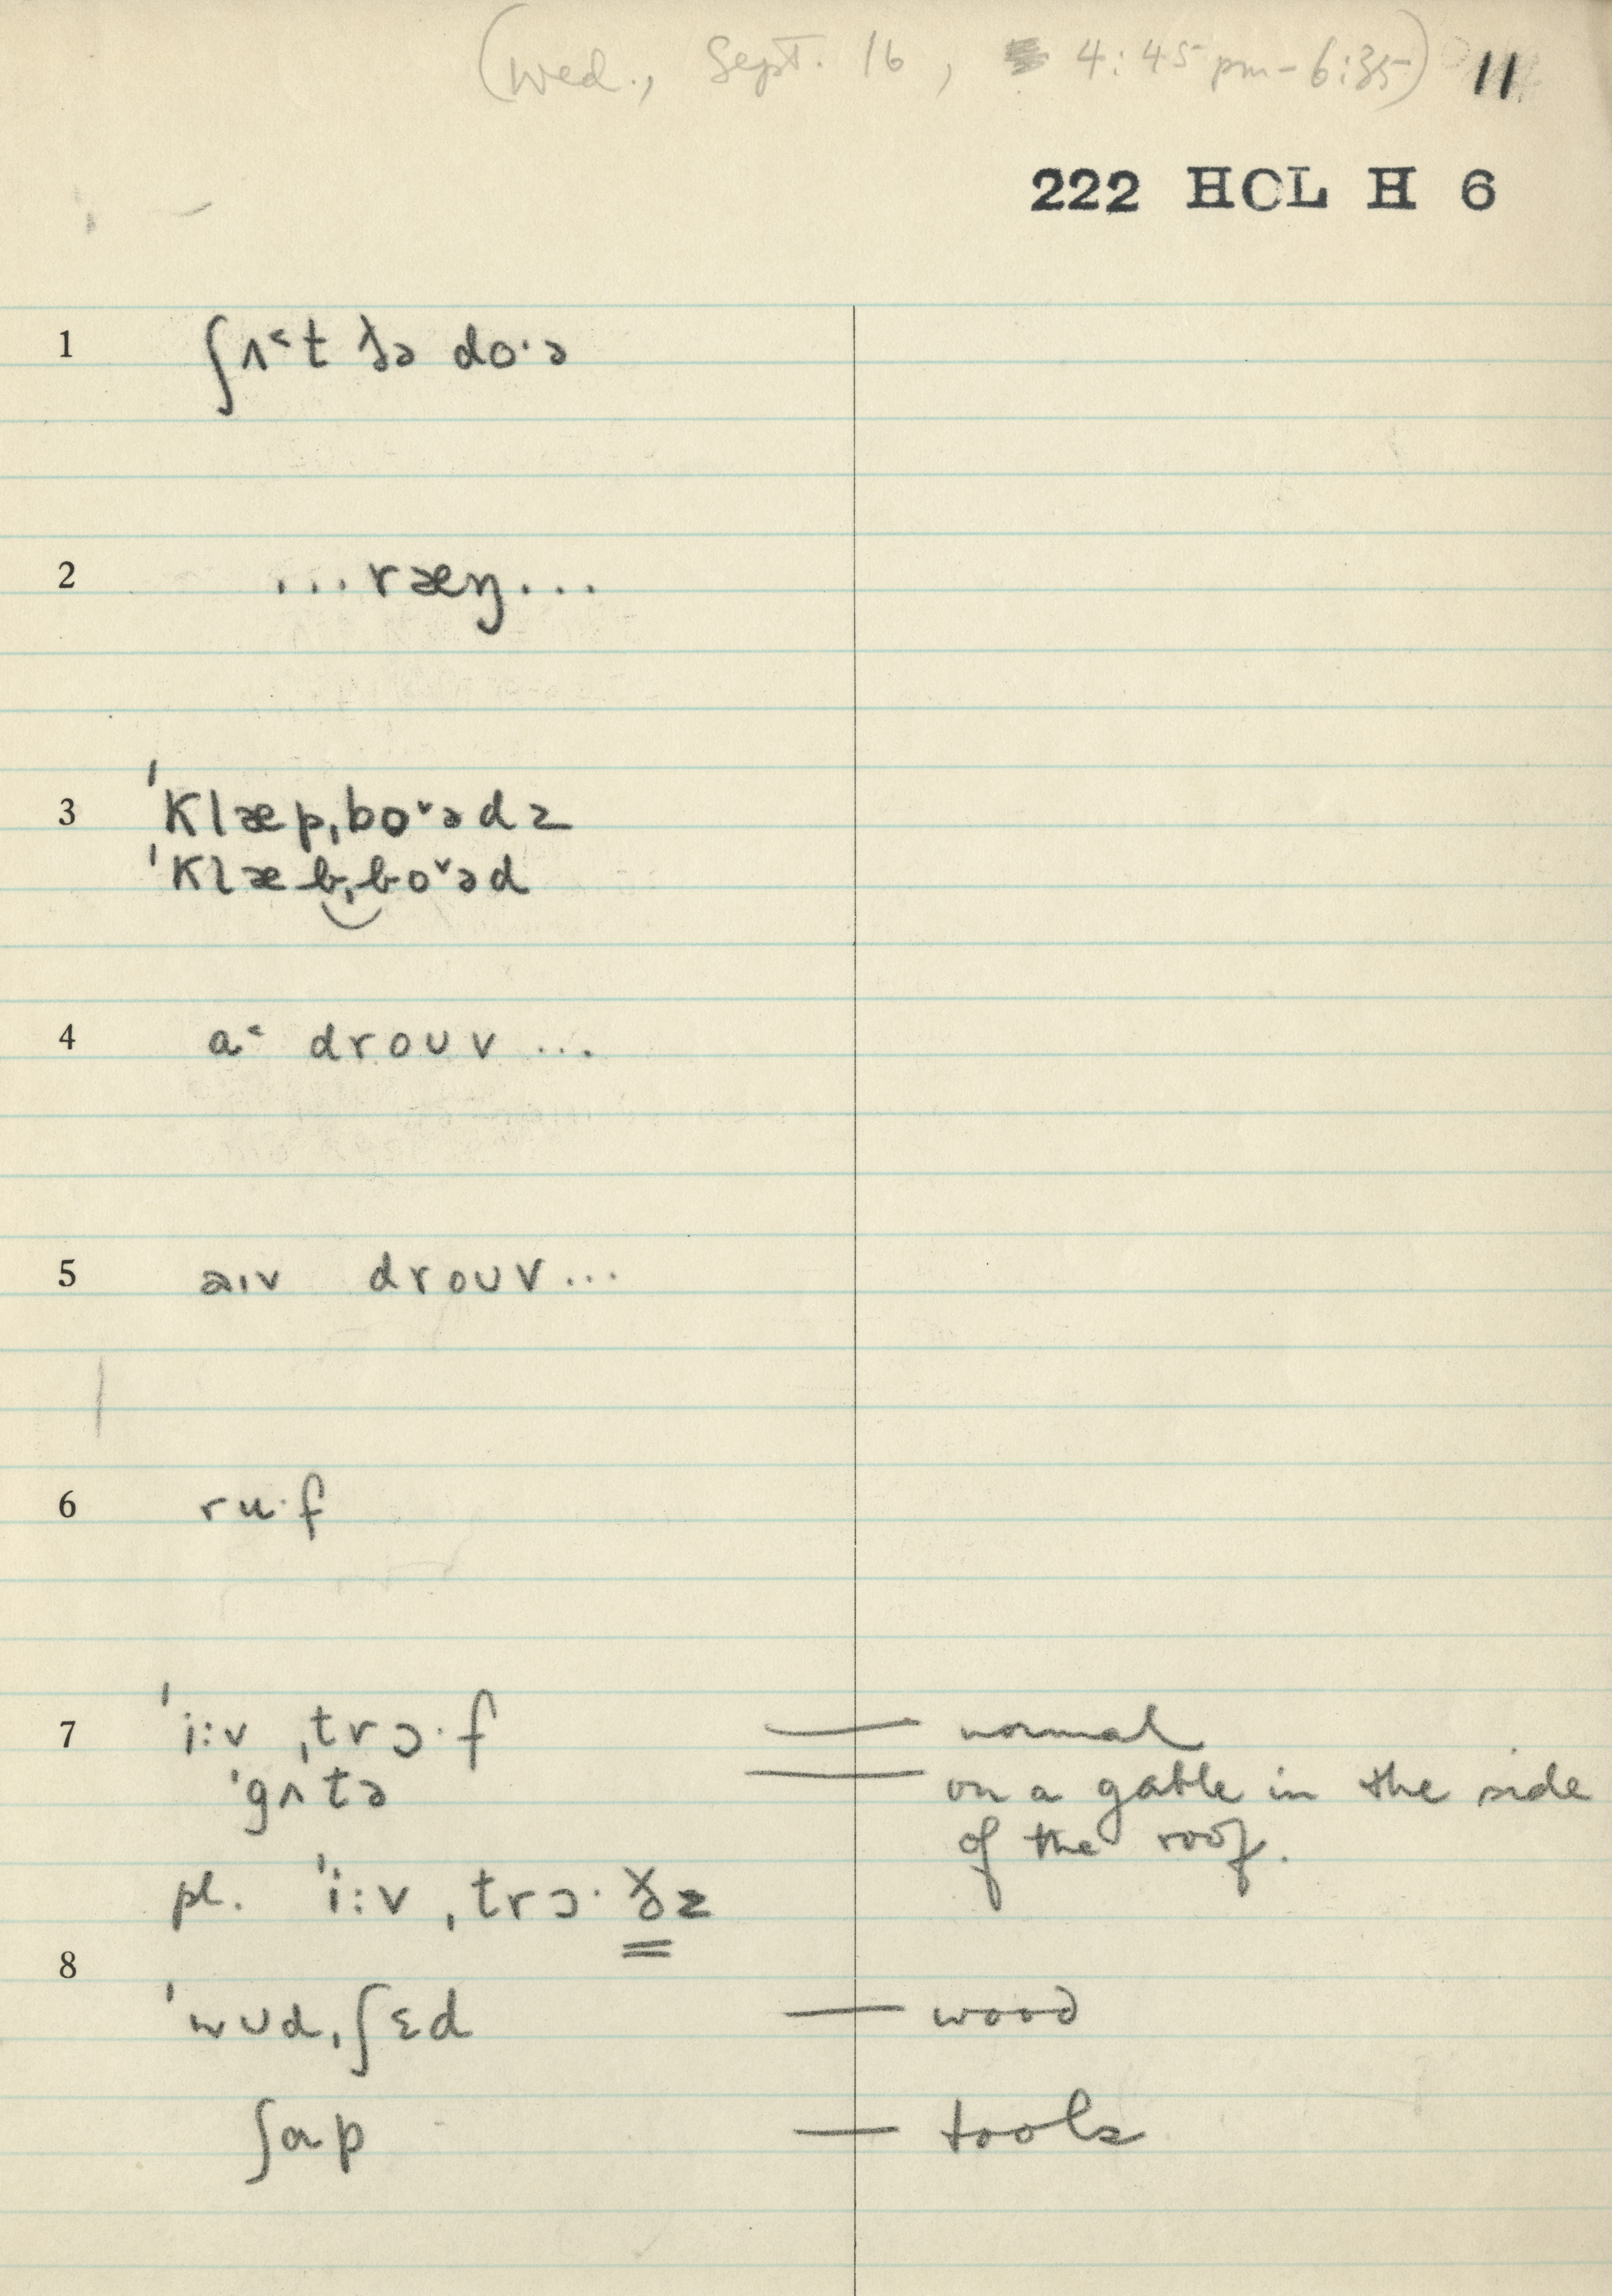 (Wed., Sept. 16, 4:45 pm – 6:35) 11
222 HCL H 6
1 ʃʌ˂t ðə do·ə
2 ...ræŋ...
3 ˈklæpˌbo˅ədz
ˈklæbˌbo˅əd
4 a˂ droʊv ...
5 aɪv droʊv...
6 ru·f
7 ˈi:vˌtrɔ·f — normal
ˈgʌtə — on a gable in the side
of the roof.
pl. ˈi:vˌtrɔ·ðz
8
ˈwʊdˌʃɛd — wood
ʃɑp — tools